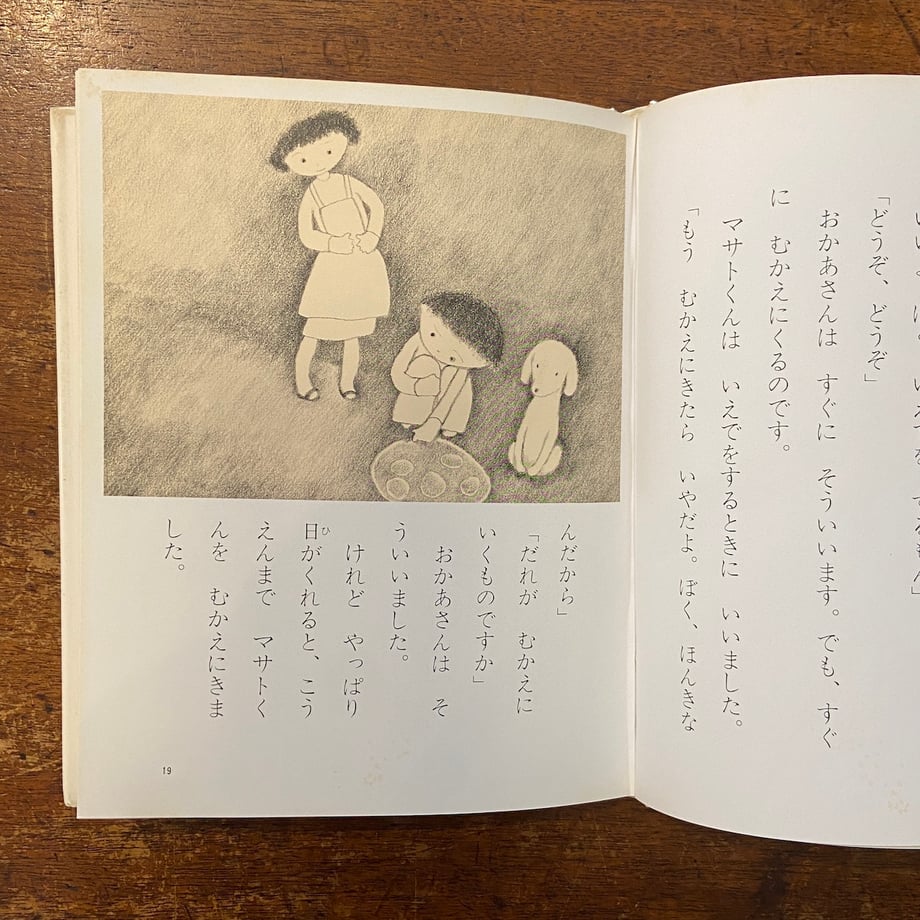 「どうぞ、どうぞ」
おかあさんは　すぐに　そういいます。でも、すぐ
に　むかえにくるのです。
マサトくんは　いえでをするときに　いいました。
「もう　むかえにきたら　いやだよ。ぼく、ほんきな
んだから」
「だれが　むかえに
いくものですか」
おかあさんは　そ
ういいました。
けれど　やっぱり
日がくれると、こう
えんまで　マサトく
んを　むかえにきま
した。
19